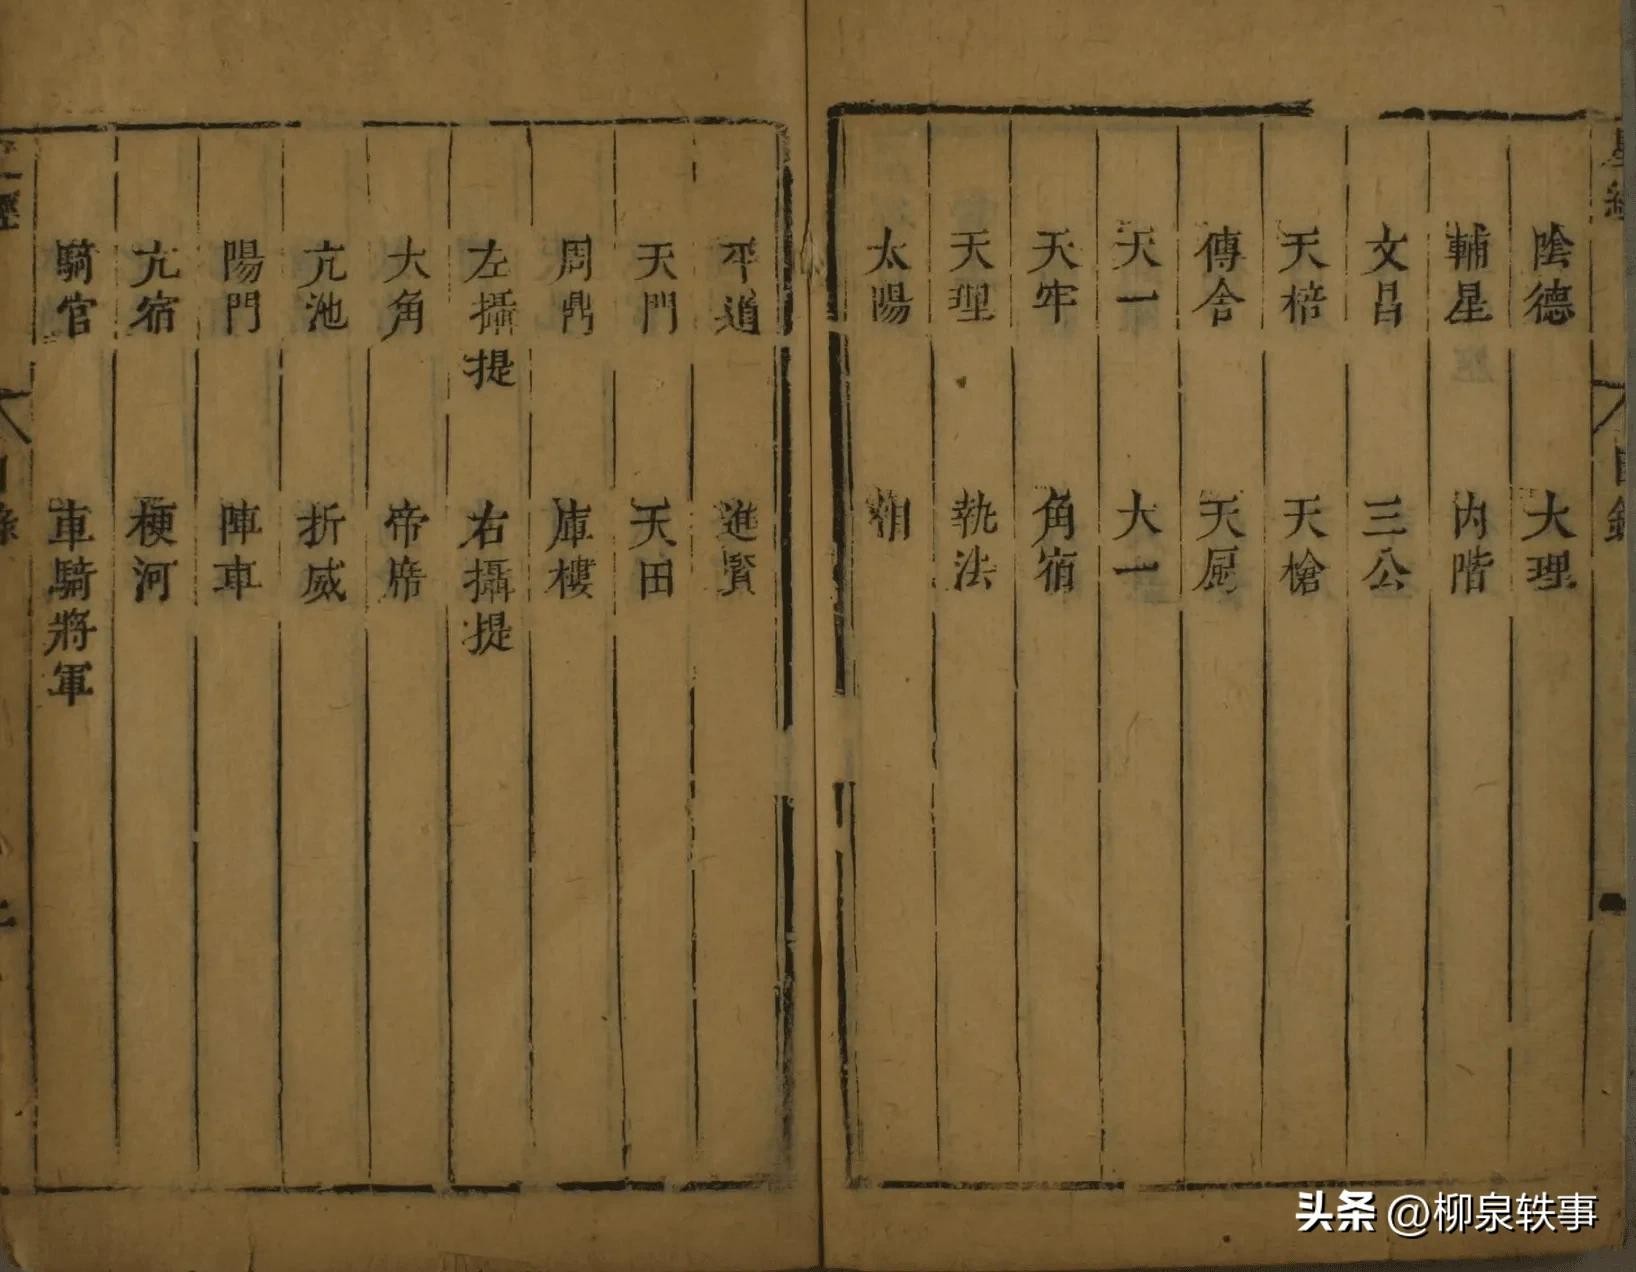 陰德 大理
輔星 內階
文昌 三公
天棓 天槍
傳舍 天厨
天一 大一
天牢 角宿
天理 執法
太陽 相
平道 進賢
天門 天田
周鼎 庫樓
左攝提 右攝提
大角 帝席
亢池 折威
陽門 陣車
亢宿 梗河
騎官 車騎將軍
头条 @柳泉轶事